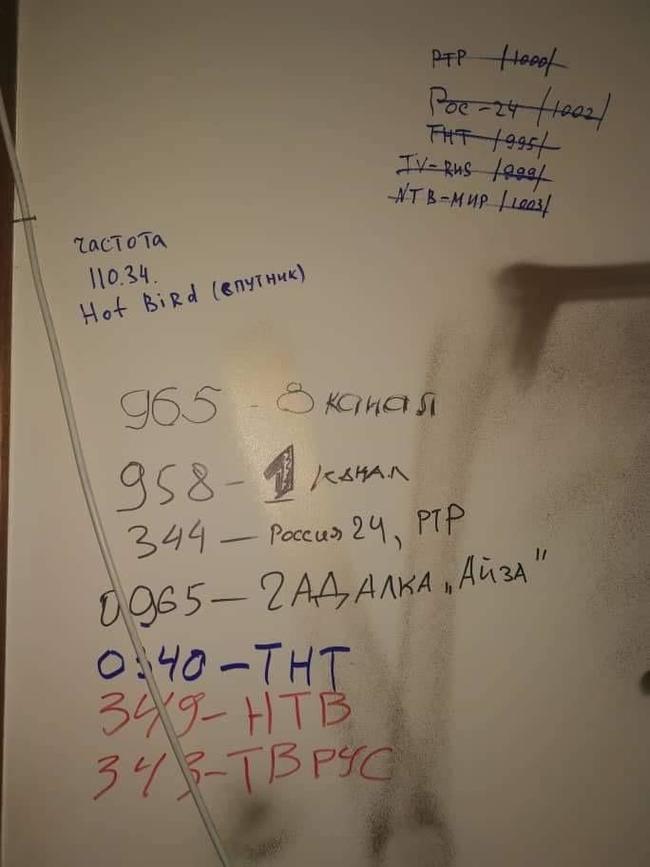 РТР /1000/
Рос-24 /1002/
ТНТ /995/
TV-RUS /999/
NТВ-МИР /1003/
частота
110.34.
Hot BiRd (спутник)
965 - 8 канал
958 - 1 канал
344 - Россия 24, РТР
0965 - ГАДАЛКА „Айза"
0340 - ТНТ
349 - НТВ
343 - ТВ РУС